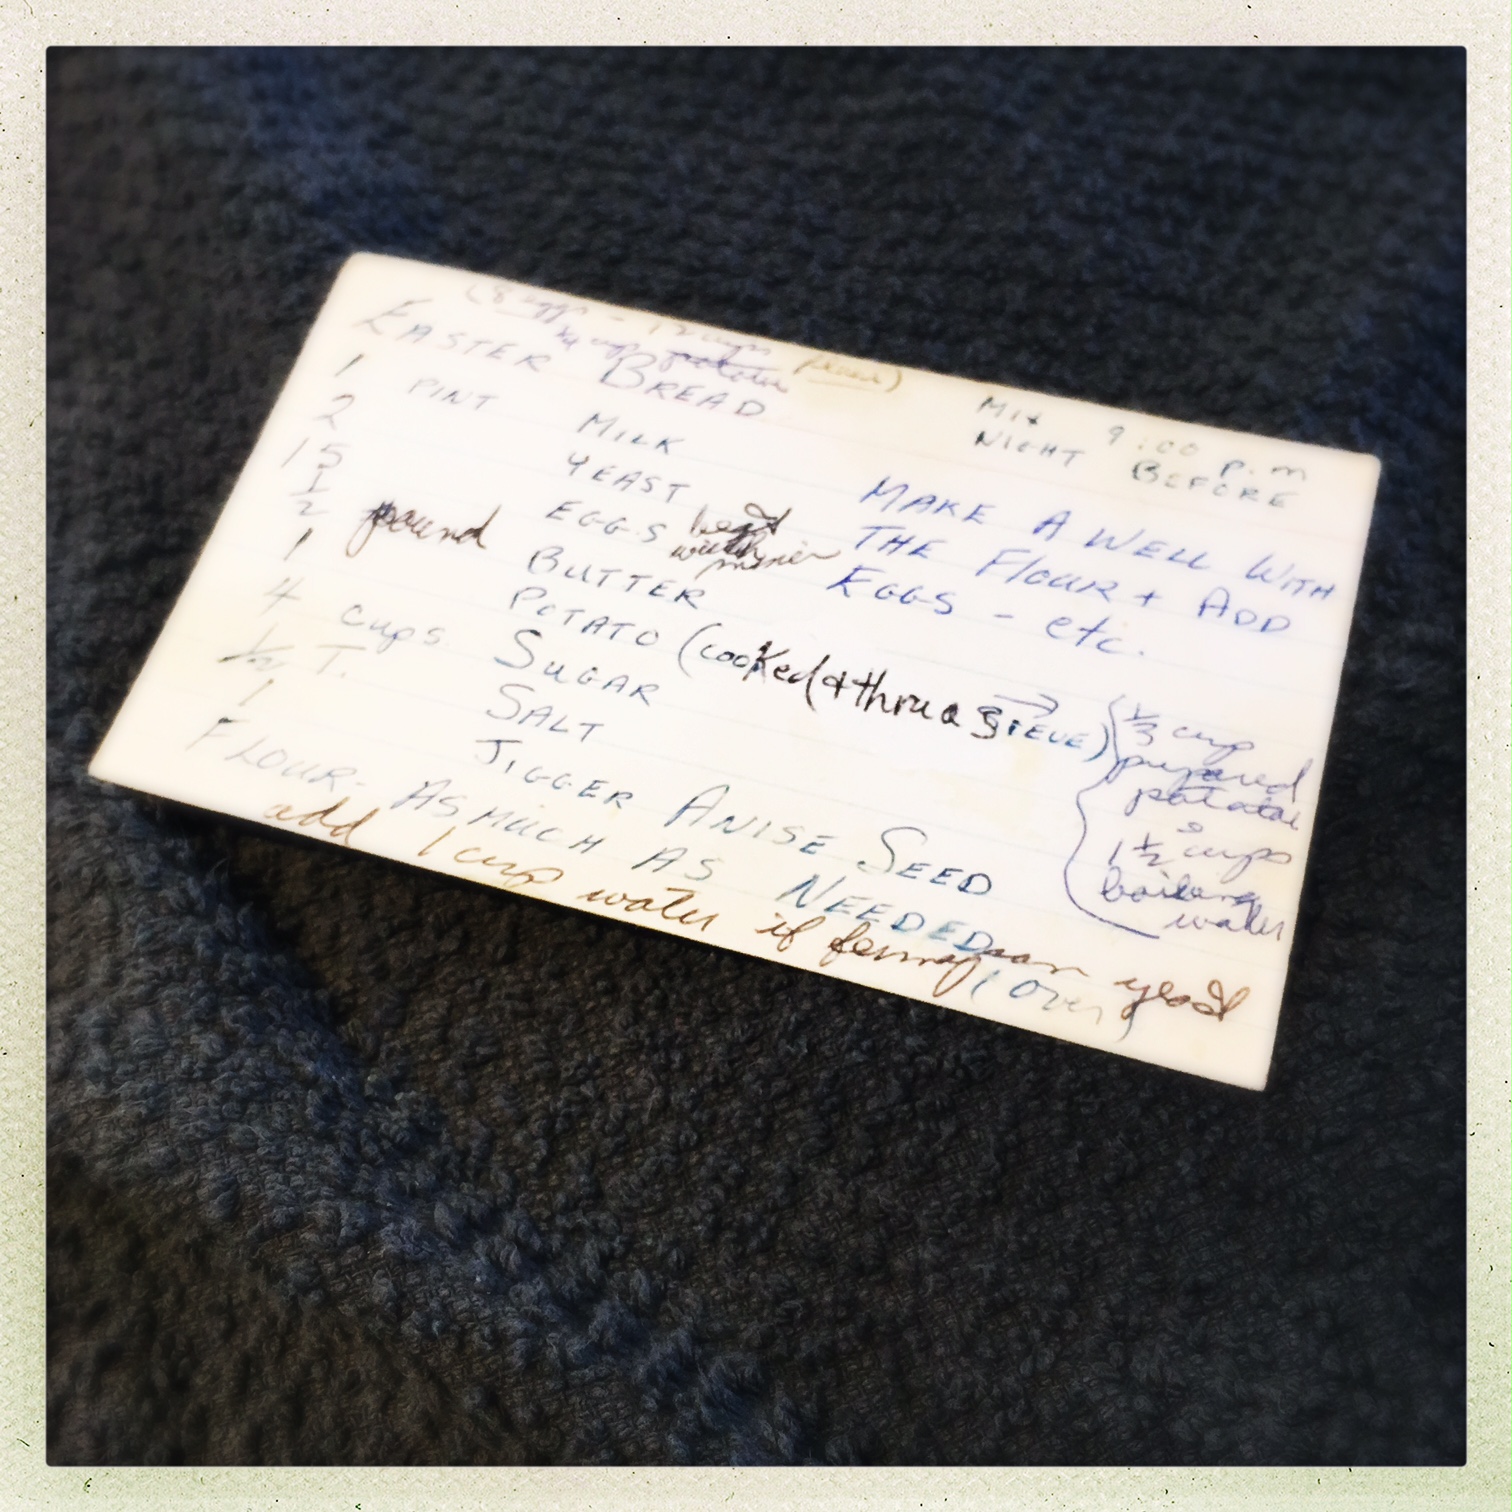 (8 eggs - 12 cups flour)
¾ cup potatoes
EASTER BREAD
MIX 9:00 P.M
NIGHT BEFORE
1 PINT MILK
2 YEAST
15 EGGS beat with mixer
½ pound BUTTER
1 POTATO (cooked & thru a SIEVE)
4 cups SUGAR
½ T. SALT
1 JIGGER ANISE SEED
FLOUR - AS MUCH AS NEEDED
add 1 cup water if using yeast
(over)
MAKE A WELL WITH
THE FLOUR + ADD
EGGS - etc.
⅓ cup
prepared
potatoe
1½ cups
boiling
water